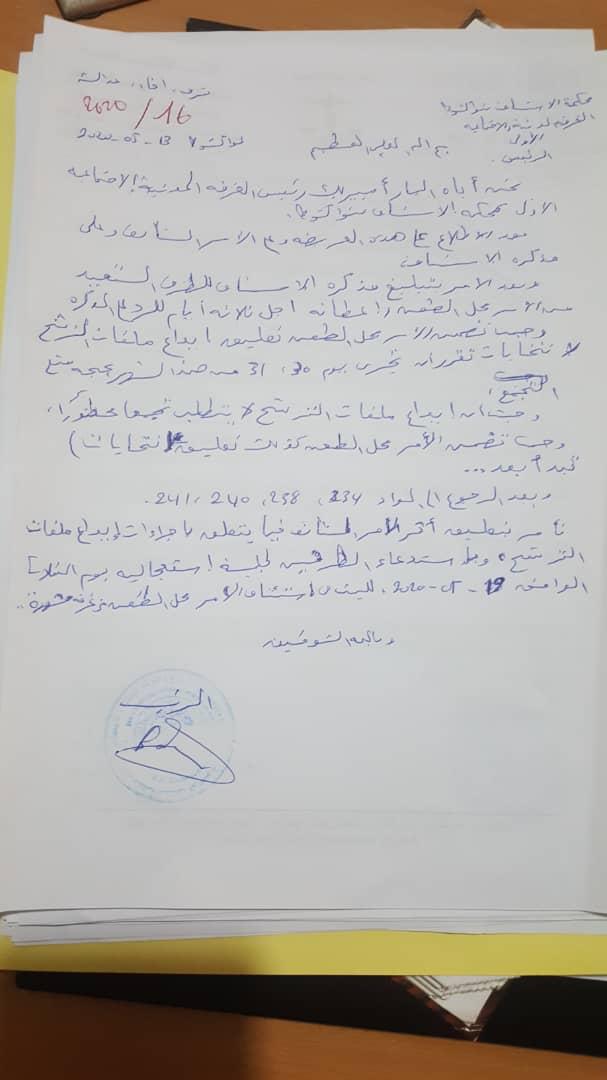 محكمة الاستئناف بنواكشوط
الغرفة المدنية والاجتماعية
الأولى
الرئيس
شرف، إخاء، عدالة
2020/16
نواكشوط 13-05-2020
بسم الله العلي العظيم
نحن أباه امبارك رئيس الغرفة المدنية الاجتماعية
الأولى بمحكمة الاستئناف بنواكشوط.
بعد الاطلاع على هذه العريضة وعلى الأمر المستأنف وعلى
مذكرة الاستئناف،
وبعد الأمر بتبليغ مذكرة الاستئناف للطرف المستفيد
من الأمر محل الطعن وإعطائه أجل ثلاثة أيام للرد على المذكرة
وحيث تضمن الأمر محل الطعن تعليق إيداع ملفات الترشح
لانتخابات تقرر أن تجرى يوم 30، 31 من هذا الشهر بحجة منع
التجمع،
وحيث أن إيداع ملفات الترشح لا يتطلب تجمعا محظورا،
وحيث تضمن الأمر محل الطعن كذلك تعليق انتخابات)
تبدأ بعد...
وبعد الرجوع إلى المواد 234، 238، 240، 241.
نأمر بتعليق أثر الأمر المستأنف فيما يتعلق بإجراءات إيداع ملفات
الترشح، وباستدعاء الطرفين لجلسة استعجالية يوم الثلاثاء
الموافق 19-05-2020، للبت في استئناف الأمر محل الطعن في غرفة مشورة..
وبالله التوفيق
الرئيس